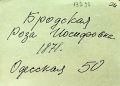 Бродская
Роза Иосифовна
1871.
Одесская 50